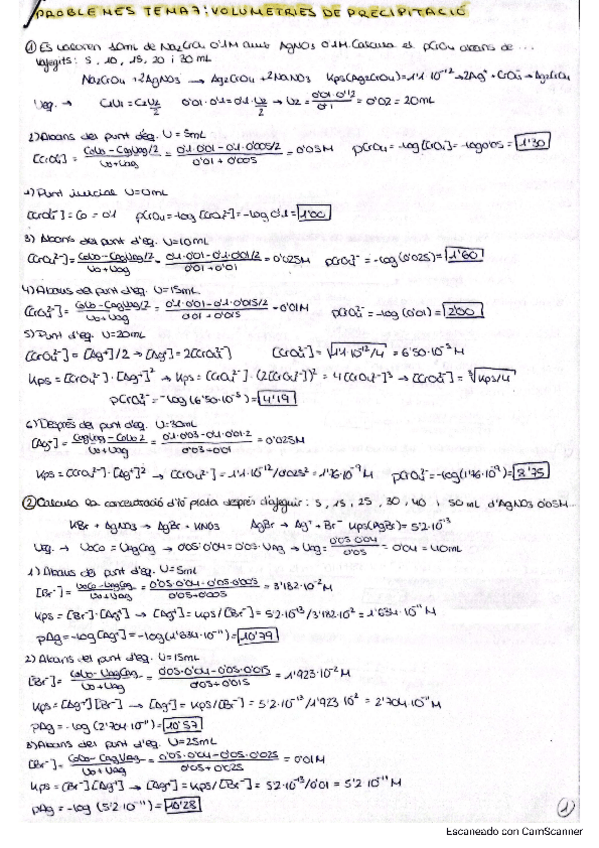 PROBLEMES TEMA 7: VOLUMETRIES DE PRECIPITACIÓ
① Es valoren 10mL de Na2CrO4 0'1M amb AgNO3 0'1M. Calcula el pCrO4 abans de ...
afegits: 5, 10, 15, 20 i 30 mL
Na2CrO4 + 2AgNO3 → Ag2CrO4 + 2NaNO3 Kps(Ag2CrO4) = 1'1·10⁻¹² → 2Ag⁺ + CrO4⁻ → Ag2CrO4
Veq. → C1V1 = C2V2/2 0'01·0'1 = 0'1·V2/2 → V2 = 0'01·0'1·2/0'1 = 0'02 = 20mL
2) Abans del punt d'eq. V = 5mL
[CrO4²⁻] = (CoVo - CagVag/2)/(Vo+Vag) = (0'1·0'01 - 0'1·0'005/2)/(0'01 + 0'005) = 0'05M pCrO4 = -log[CrO4] = -log0'05 = 1'30
1) Punt inicial V=0mL
[CrO4²⁻] = Co = 0'1 pCrO4 = -log[CrO4²⁻] = -log0'1 = 1'00
3) Abans del punt d'eq. V=10mL
[CrO4²⁻] = (CoVo - CagVag/2)/(Vo+Vag) = (0'1·0'01 - 0'1·0'01/2)/(0'01 + 0'01) = 0'025M pCrO4²⁻ = -log(0'025) = 1'60
4) Abans del punt d'eq. V=15mL
[CrO4²⁻] = (CoVo - CagVag/2)/(Vo+Vag) = (0'1·0'01 - 0'1·0'015/2)/(0'01 + 0'015) = 0'01M pCrO4²⁻ = -log(0'01) = 2'00
5) Punt d'eq. V=20mL
[CrO4²⁻] = [Ag⁺]/2 → [Ag⁺] = 2[CrO4²⁻] [CrO4²⁻] = ∛(1'1·10⁻¹²/4) = 6'50·10⁻⁵M
Kps = [CrO4²⁻]·[Ag⁺]² → Kps = [CrO4²⁻]·(2[CrO4²⁻])² = 4[CrO4²⁻]³ → [CrO4²⁻] = ∛(Kps/4)
pCrO4²⁻ = -log(6'50·10⁻⁵) = 4'19
6) Després del punt d'eq. V=30mL
[Ag⁺] = (CagVag - CoVo·2)/(Vo+Vag) = (0'1·0'03 - 0'1·0'01·2)/(0'03 + 0'01) = 0'025M
Kps = [CrO4²⁻]·[Ag⁺]² → [CrO4²⁻] = 1'1·10⁻¹²/0'025² = 1'76·10⁻⁹M pCrO4²⁻ = -log(1'76·10⁻⁹) = 8'75
② Calcula la concentració d'ió plata després d'afeguir: 5, 15, 25, 30, 40 i 50 mL d'AgNO3 0'05M...
KBr + AgNO3 → AgBr + KNO3 AgBr → Ag⁺ + Br⁻ Kps(AgBr) = 5'2·10⁻¹³
Veq. → VoCo = VagCag → 0'05·0'04 = 0'05·Vag → Vag = 0'05·0'04/0'05 = 0'04 = 40mL
1) Abans del punt d'eq. V=5mL
[Br⁻] = (VoCo - VagCag)/(Vo+Vag) = (0'05·0'04 - 0'05·0'005)/(0'05 + 0'005) = 3'182·10⁻²M
Kps = [Br⁻]·[Ag⁺] → [Ag⁺] = Kps/[Br⁻] = 5'2·10⁻¹³/3'182·10⁻² = 1'634·10⁻¹¹M
pAg = -log[Ag⁺] = -log(1'634·10⁻¹¹) = 10'79
2) Abans del punt d'eq. V=15mL
[Br⁻] = (CoVo - VagCag)/(Vo+Vag) = (0'05·0'04 - 0'05·0'015)/(0'05 + 0'015) = 1'923·10⁻²M
Kps = [Ag⁺][Br⁻] → [Ag⁺] = Kps/[Br⁻] = 5'2·10⁻¹³/1'923·10⁻² = 2'704·10⁻¹¹M
pAg = -log(2'704·10⁻¹¹) = 10'57
3) Abans del punt d'eq. V=25mL
[Br⁻] = (CoVo - CagVag)/(Vo+Vag) = (0'05·0'04 - 0'05·0'025)/(0'05 + 0'025) = 0'01M
Kps = [Br⁻][Ag⁺] → [Ag⁺] = Kps/[Br⁻] = 5'2·10⁻¹³/0'01 = 5'2·10⁻¹¹M
pAg = -log(5'2·10⁻¹¹) = 10'28
①
Escaneado con CamScanner